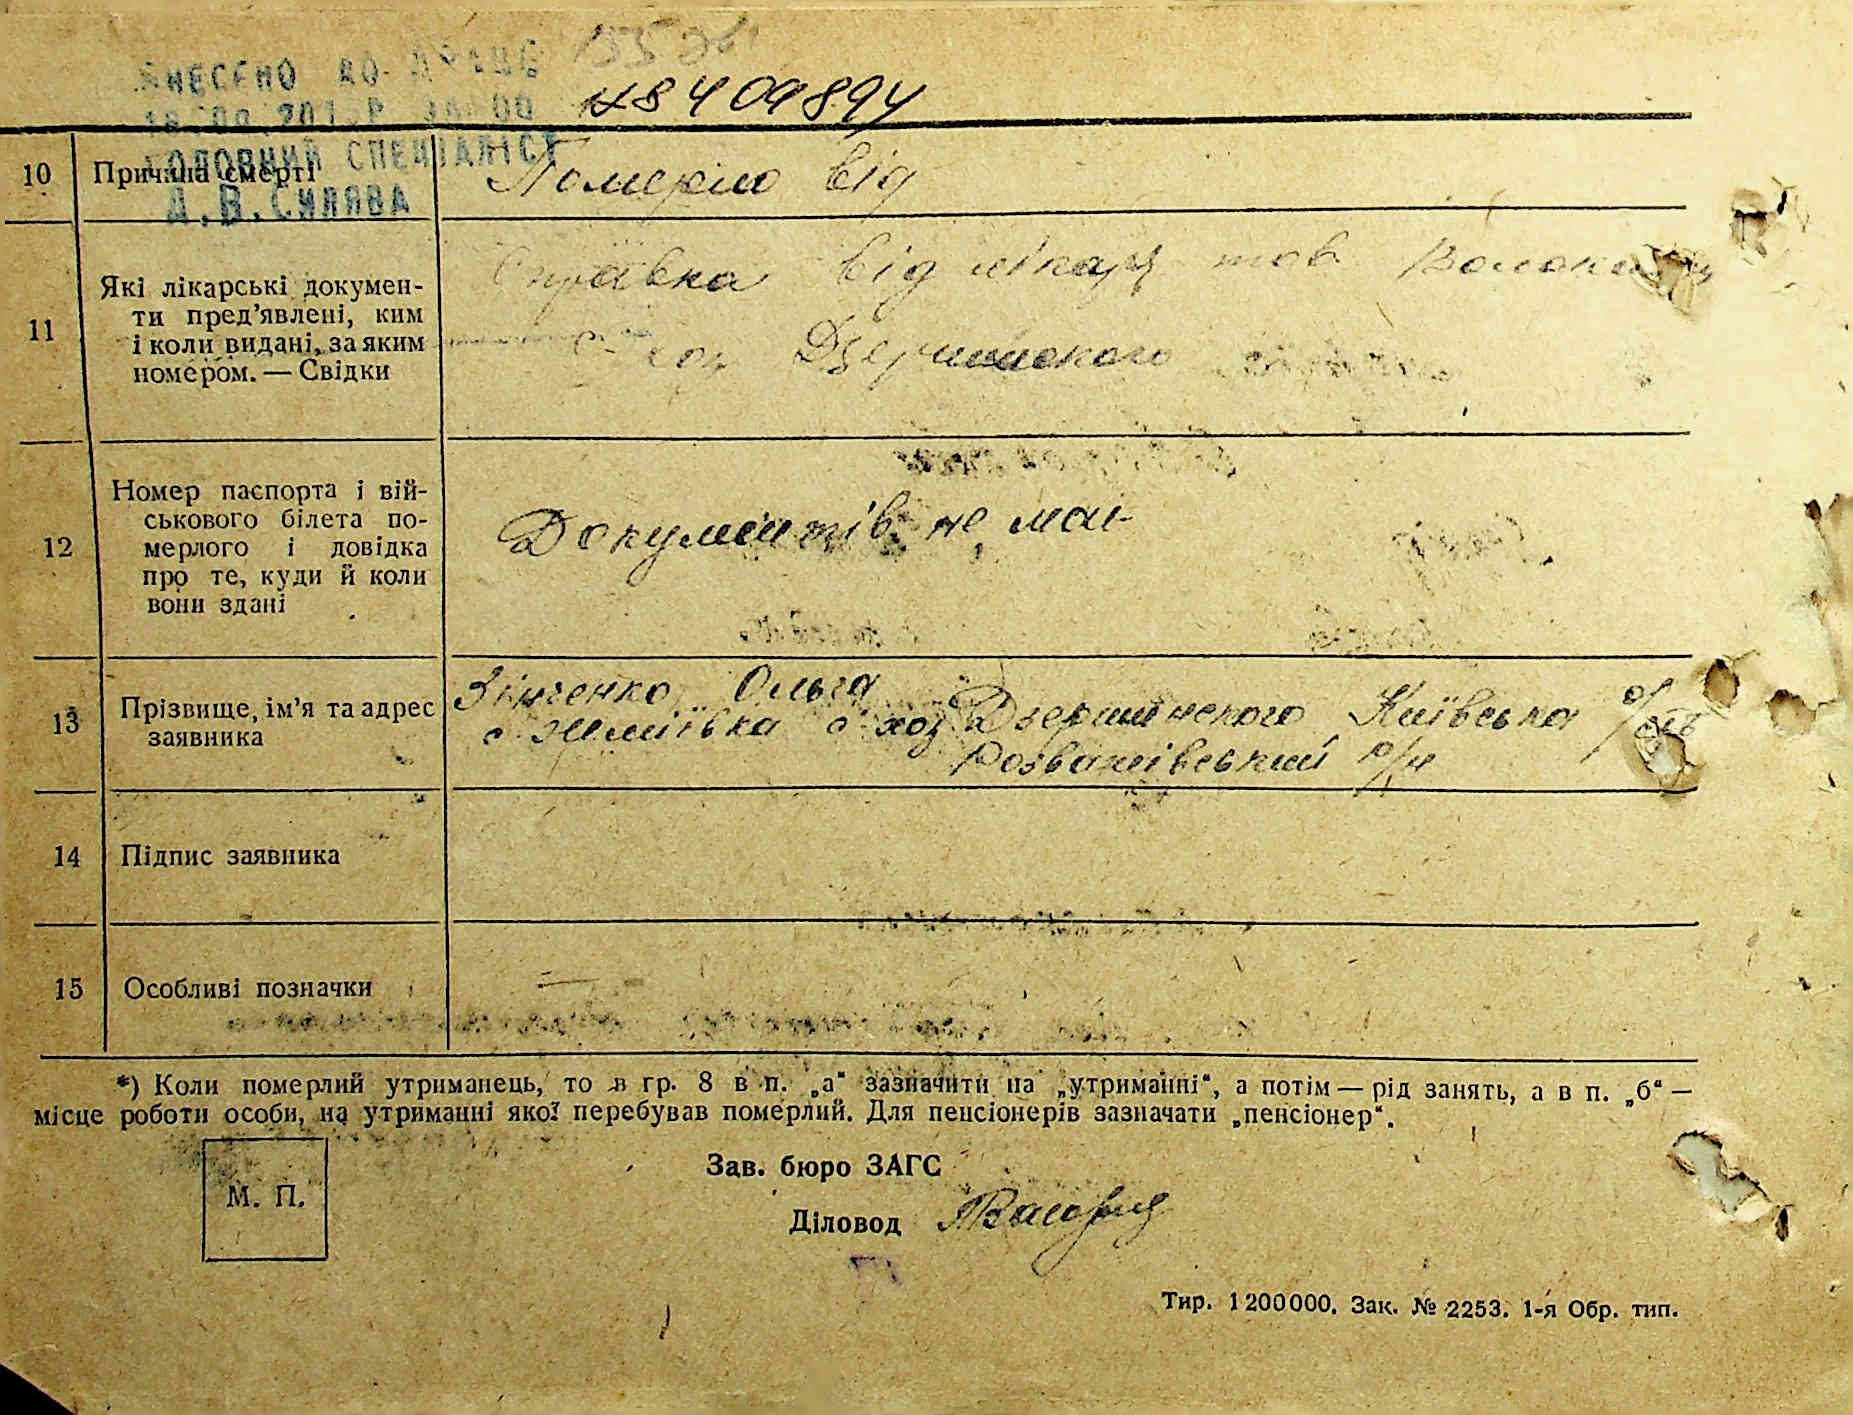 ВНЕСЕНО ДО
ГОЛОВНИЙ СПЕЦІАЛІСТ
Д.В.СИЛЯВА
10 Причина смерті Померло від
11 Які лікарські докумен-
ти пред’явлені, ким
і коли видані, за яким
номером. — Свідки
Справка від лікаря тов.
Дзержинского
12 Номер паспорта і вій-
ськового білета по-
мерлого і довідка
про те, куди й коли
вони здані
Документів не має
13 Прізвище, ім’я та адрес
заявника
Зінченко Ольга
с Жміївка с хоз Дзержинского Київська
Розважівський р/н
14 Підпис заявника
15 Особливі позначки —
*) Коли померлий утриманець, то в гр. 8 в п. „а“ зазначити на „утриманні“, а потім — рід занять, а в п. „б“ —
місце роботи особи, на утриманні якої перебував померлий. Для пенсіонерів зазначати „пенсіонер“.
М. П.
Зав. бюро ЗАГС
Діловод
Тир. 1200000. Зак. № 2253. 1-я Обр. тип.